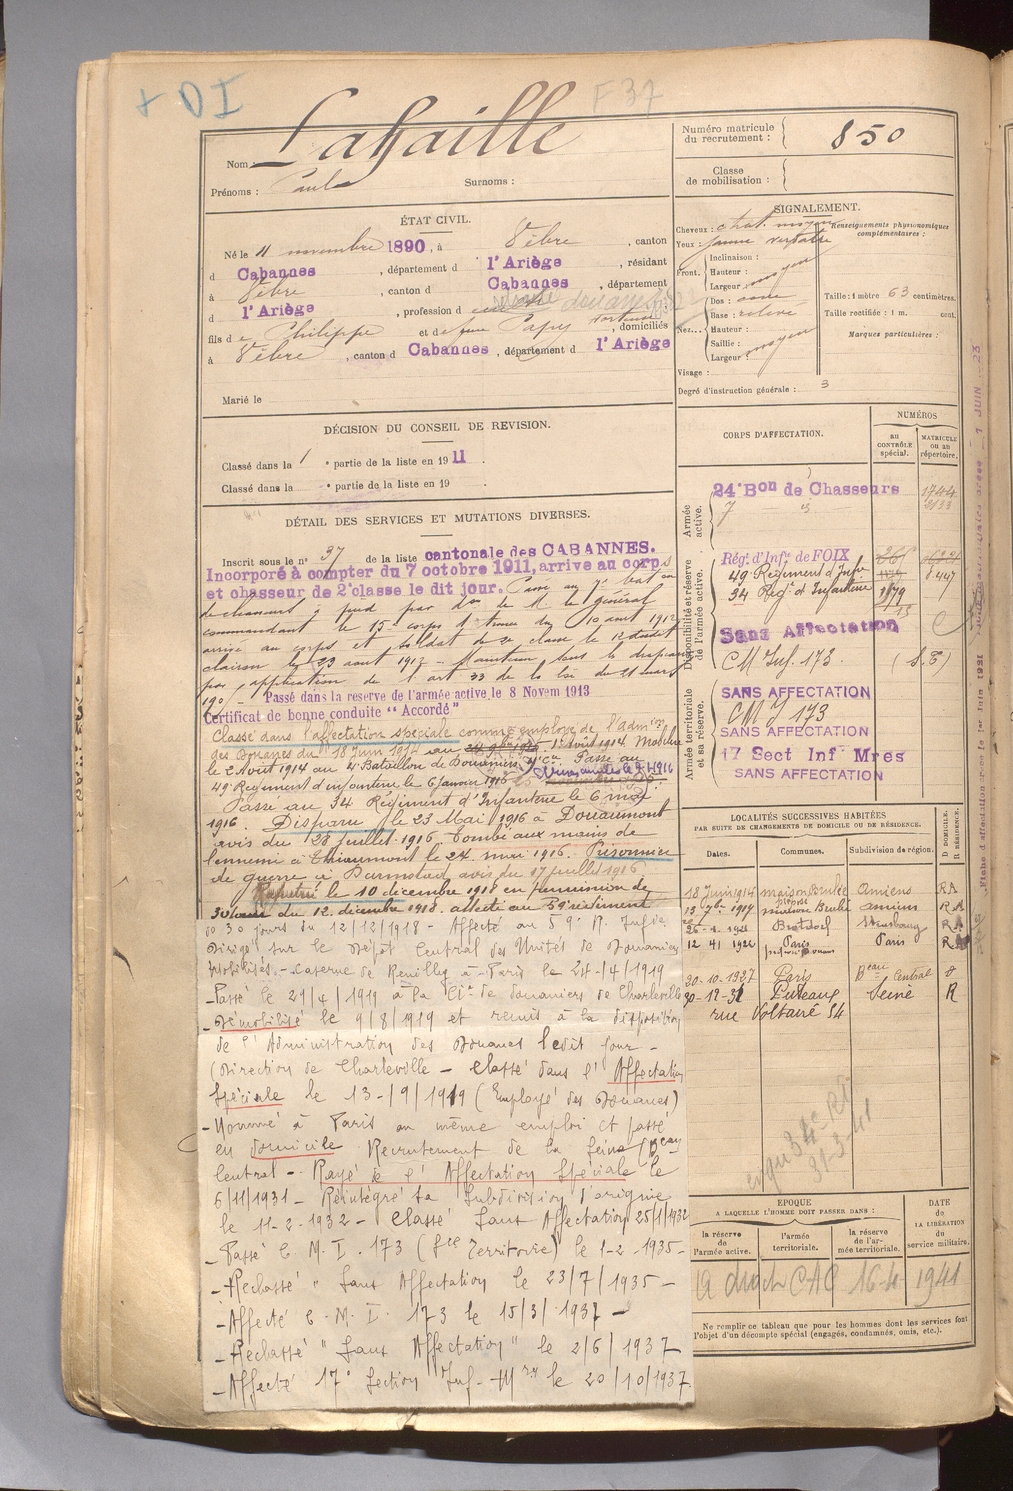 + DI
F 37
Nom : Lahaille
Prénoms : Paul Surnoms :
Numéro matricule du recrutement : 850
Classe de mobilisation :
ÉTAT CIVIL.
Né le 11 novembre 1890, à Vèbre, canton
d Cabannes, département d l'Ariège, résidant
à Vèbre, canton d Cabannes, département
d l'Ariège, profession d
fils d Philippe et d Papy, domiciliés
à Vèbre, canton d Cabannes, département d l'Ariège
Marié le
SIGNALEMENT.
Cheveux : chat. moyen
Renseignements physionomiques complémentaires :
Yeux : jaune verdâtre
Front. Inclinaison :
Hauteur :
Largeur : moyen
Nez... Dos :
Base : relevé
Hauteur :
Saillie : moyen
Largeur :
Taille : 1 mètre 63 centimètres.
Taille rectifiée : 1 m. cent.
Marques particulières :
Visage :
Degré d'instruction générale : 3
DÉCISION DU CONSEIL DE REVISION.
Classé dans la 1 e partie de la liste en 1911.
Classé dans la e partie de la liste en 19 .
DÉTAIL DES SERVICES ET MUTATIONS DIVERSES.
Inscrit sous le n° 37 de la liste cantonale des CABANNES.
Incorporé à compter du 7 octobre 1911, arrive au corps
et chasseur de 2e classe le dit jour. Passé au 7e baton
de chasseurs à pied par Don de M. le général
commandant le 15e corps d'armée du 10 août 1912
arrivé au corps et soldat de 2e classe le 12 dudit
clairon le 23 août 1913 - Maintenu sous les drapeaux
par application de l'art 33 de la loi du 21 mars
190 - Passé dans la reserve de l'armée active, le 8 Novem 1913
Certificat de bonne conduite "Accordé"
Classé dans l'affectation spéciale comme employé de l'Admion
des Douanes du 18 Juin 1914 au 1er Août 1914 Mobilisé
le 2 Août 1914 au 4e Bataillon de Douaniers 4e Cie Passé au
49e Régiment d'infanterie le 6 janvier 1916
Passé au 34 Régiment d'Infanterie le 6 mai
1916. Disparu le 23 Mai 1916 à Douaumont
avis du 28 juillet 1916 Tombé aux mains de
l'ennemi à Thiaumont le 24 mai 1916. Prisonnier
de guerre à Darmstad, avis du 17 juillet 1916
Rapatrié le 10 décembre 1918 en permission de
30 jours du 12 décembre 1918. affecté au 59 régiment
30 jours du 12/12/1918 - Affecté au 59e R. Infie
Dirigé sur le Dépôt Central des Unités de Douaniers
Mobilisés. - Caserne de Reuilly à Paris le 24/4/1919
- Passé le 29/4/1919 à la Cie de douaniers de Charleville
- Démobilisé le 9/8/1919 et remis à la disposition
de l'Administration des Douanes ledit jour -
(Direction de Charleville - Classé dans l'Affectation
Spéciale le 13-/9/1919 (Employé des Douanes)
- Nommé à Paris au même emploi et passé
en domicile Recrutement de la Seine (Beau
Central - Rayé de l'Affectation Spéciale le
6/11/1931 - Réintégré sa Subdivision d'origine
le 11-2-1932 - Classé Sans Affectation 25/1/1932
- Passé C. M. I. 173 (Sce Territoire) le 1-2-1935 -
- Reclassé "Sans Affectation le 23/7/1935 -
- Affecté C. M. I. 173 le 15/3/1937 -
- Reclassé "Sans Affectation" le 2/6/1937
- Affecté 17e Section Inf-Mres le 20/10/1937.
CORPS D'AFFECTATION.
NUMÉROS
AU CONTRÔLE spécial.
MATRICULE ou au répertoire.
Armée active.
24e Bon de Chasseurs 1744
7 d
Disponibilité et réserve de l'armée active.
Régt d'Infie de FOIX
49 Régiment d'Infie 8447
34 Régt d'Infanterie 1179
Sans Affectation
CM Inf. 173. (S. T)
Armée territoriale et sa réserve.
SANS AFFECTATION
CM I 173
SANS AFFECTATION
17 Sect Inf Mres
SANS AFFECTATION
LOCALITÉS SUCCESSIVES HABITÉES
PAR SUITE DE CHANGEMENTS DE DOMICILE OU DE RÉSIDENCE.
Dates. Communes. Subdivision de région. D DOMICILE. R RÉSIDENCE.
18 Juin 1914 maison Brulée Amiens R A
amiens R A
Strasbourg R A
Paris Paris R A
30-10-1927 Paris Beau Central D
30-12-31 Puteaux Seine R
rue Voltaire 54
31-3-41
EPOQUE
A LAQUELLE L'HOMME DOIT PASSER DANS :
la réserve de l'armée active.
l'armée territoriale.
la réserve de l'armée territoriale.
DATE de LA LIBÉRATION du service militaire.
CAC 16-4 1941
Ne remplir ce tableau que pour les hommes dont les services font
l'objet d'un décompte spécial (engagés, condamnés, omis, etc.).